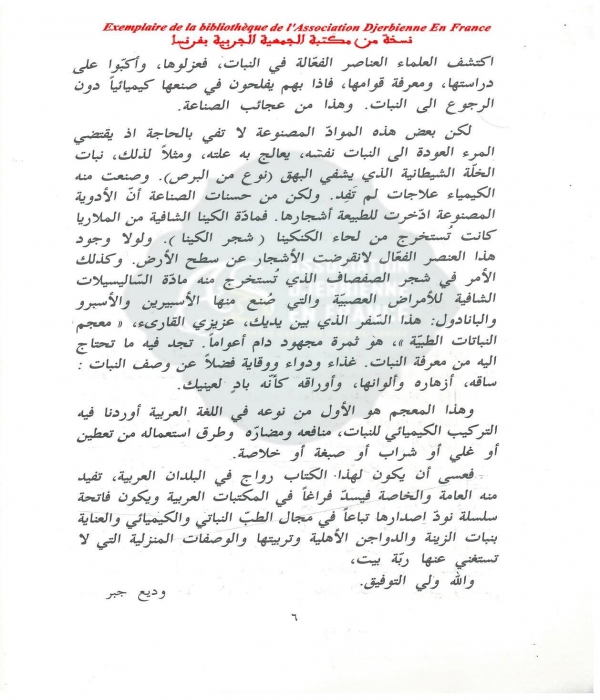 Exemplaire de la bibliothèque de l'Association Djerbienne En France
نسخة من مكتبة الجمعية الجربية بفرنسا
اكتشف العلماء العناصر الفعّالة في النبات، فعزلوها، وأكبّوا على
دراستها، ومعرفة قوامها، فاذا بهم يفلحون في صنعها كيميائياً دون
الرجوع الى النبات. وهذا من عجائب الصناعة.
لكن بعض هذه الموادّ المصنوعة لا تفي بالحاجة اذ يقتضي
المرء العودة الى النبات نفسَه، يعالج به علته، ومثلاً لذلك، نبات
الخلّة الشيطانية الذي يشفي البهق (نوع من البرص). وصنعت منه
الكيمياء علاجات لم تَفِد. ولكن من حسنات الصناعة أنّ الأدوية
المصنوعة ادّخرت للطبيعة أشجارها. فمادّة الكينا الشافية من الملاريا
كانت تُستخرج من لحاء الكنكينا (شجر الكينا). ولولا وجود
هذا العنصر الفعّال لانقرضت الأشجار عن سطح الأرض. وكذلك
الأمر في شجر الصفصاف الذي تُستخرج منه مادّة السّاليسيلات
الشافية للأمراض العصبيّة والتي صُنع منها الأسبيرين والأسبرو
والبانادول: هذا السّفر الذي بين يديك، عزيزي القارىء، « معجم
النباتات الطبيّة »، هو ثمرة مجهود دام أعواماً. تجد فيه ما تحتاج
اليه من معرفة النبات. غذاء ودواء ووقاية فضلاً عن وصف النبات :
ساقه، أزهاره وألوانها، وأوراقه كأنّه بادٍ لعينيك.
وهذا المعجم هو الأول من نوعه في اللغة العربية أوردنا فيه
التركيب الكيميائي للنبات، منافعه ومضارّه وطرق استعماله من تعطين
أو غلي أو شراب أو صبغة أو خلاصة.
فعسى أن يكون لهذا الكتاب رواج في البلدان العربية، تفيد
منه العامة والخاصة فيسدّ فراغاً في المكتبات العربية ويكون فاتحة
سلسلة نودّ اصدارها تباعاً في مجال الطبّ النباتي والكيميائي والعناية
بنبات الزينة والدواجن الأهلية وتربيتها والوصفات المنزلية التي لا
تستغني عنها ربّة بيت،
والله ولي التوفيق.
وديع جبر
٦